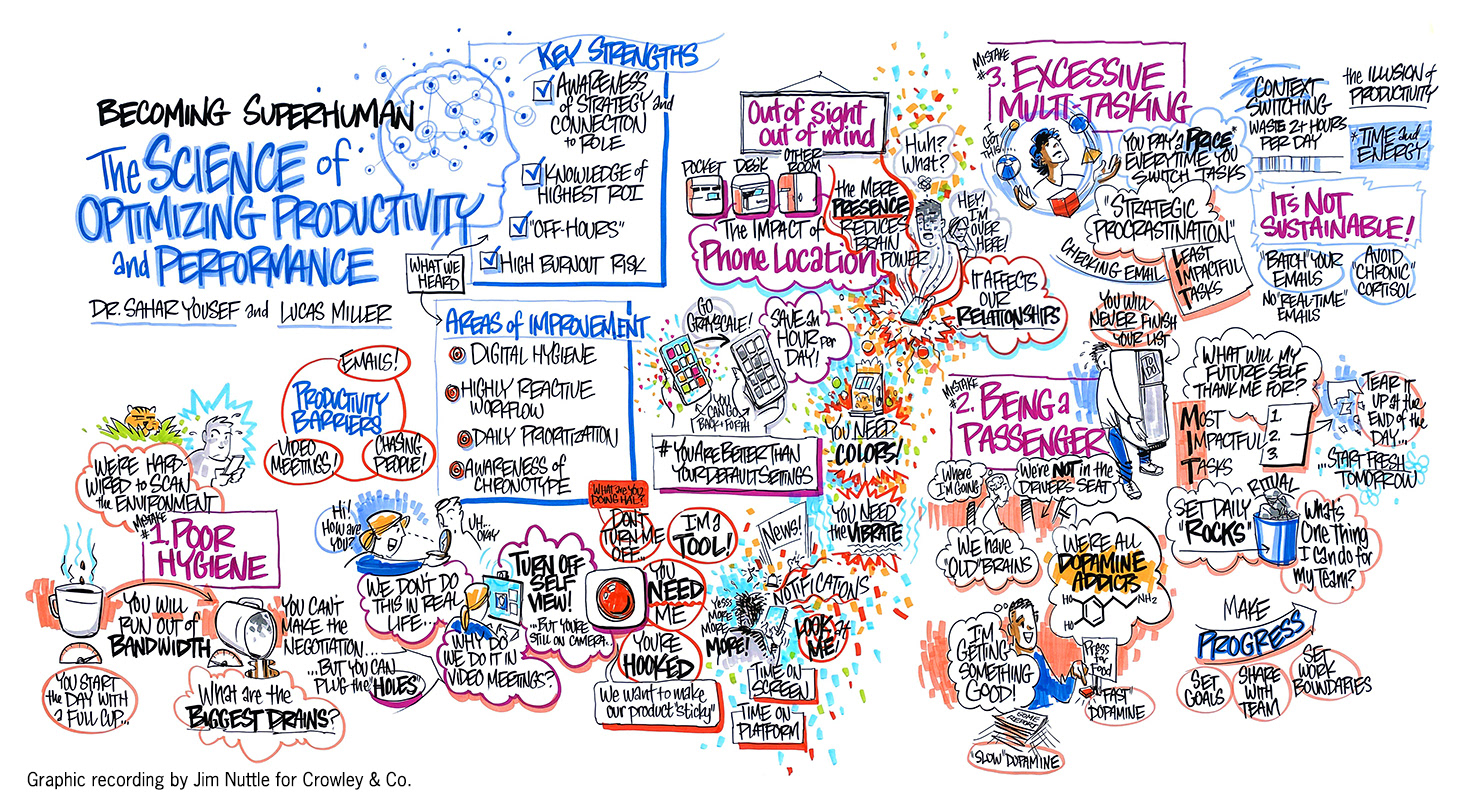 BECOMING SUPERHUMAN
The SCIENCE of
OPTIMIZING PRODUCTIVITY
and PERFORMANCE
DR. SAHAR YOUSEF and LUCAS MILLER
KEY STRENGTHS
AWARENESS
of STRATEGY and
CONNECTION
to ROLE
KNOWLEDGE of
HIGHEST ROI
"OFF-HOURS"
HIGH BURNOUT RISK
WHAT WE
HEARD
AREAS of IMPROVEMENT
DIGITAL HYGIENE
HIGHLY REACTIVE
WORKFLOW
DAILY PRIORITIZATION
AWARENESS of
CHRONOTYPE
EMAILS!
PRODUCTIVITY
BARRIERS
VIDEO
MEETINGS!
CHASING
PEOPLE!
WE'RE HARD-
WIRED to SCAN
the ENVIRONMENT
MISTAKE
#1. POOR
HYGIENE
YOU WILL
RUN OUT of
BANDWIDTH
YOU START
the DAY WITH
a FULL CUP...
YOU CAN'T
MAKE the
NEGOTIATION...
...BUT YOU CAN
PLUG the "HOLES"
What are the
BIGGEST DRAINS?
Hi!
HOW are
YOU?
UH...
OKAY
WE DON'T DO
THIS IN REAL
LIFE...
WHY DO
WE DO IT IN
VIDEO MEETINGS?
TURN OFF
SELF
VIEW!
...BUT YOU'RE
STILL ON CAMERA...
WHAT are YOU
DOING HAL?
DON'T
TURN ME
OFF...
I'M a
TOOL!
YOU
NEED
ME
YOU'RE
HOOKED
We want to make
our product "sticky"
Out of Sight
out of mind
POCKET
DESK
OTHER
ROOM
The IMPACT of
Phone Location
the MERE
PRESENCE
REDUCES
BRAIN
POWER
Huh?
What?
HEY!
I'M
OVER
HERE!
IT AFFECTS
OUR
RELATIONSHIPS
GO
GRAYSCALE!
SAVE an
HOUR per
DAY!
YOU
CAN GO
BACK + FORTH!
# YOU ARE BETTER THAN
YOUR DEFAULT SETTINGS
YOU NEED
COLORS!
YOU NEED
the VIBRATE
News!
NOTIFICATIONS
YESSS
MORE
MORE
MORE!
LOOK at
ME!
TIME ON
SCREEN
TIME ON
PLATFORM
MISTAKE
#3. EXCESSIVE
MULTI-TASKING
I GOT
THIS...
YOU PAY a "PRICE"
EVERYTIME YOU
SWITCH TASKS
"STRATEGIC
PROCRASTINATION"
CHECKING EMAIL
LEAST
IMPACTFUL
TASKS
CONTEXT
SWITCHING
WASTE 2+ HOURS
PER DAY
the ILLUSION of
PRODUCTIVITY
*TIME and
ENERGY
IT'S NOT
SUSTAINABLE!
"BATCH" YOUR
EMAILS
NO "REAL-TIME"
EMAILS
AVOID
"CHRONIC"
CORTISOL
MISTAKE
#2. BEING a
PASSENGER
YOU WILL
NEVER FINISH
YOUR LIST
TO
DO
Where
I'M GOING
We're NOT in the
DRIVERS SEAT
WE HAVE
"OLD" BRAINS
WE'RE ALL
DOPAMINE
ADDICTS
HO
HO
NH2
I'M
GETTING
SOMETHING
GOOD!
Press
for
Food
"FAST"
DOPAMINE
SOME
REPORT
"SLOW" DOPAMINE
WHAT WILL MY
FUTURE SELF
THANK ME FOR?
MOST
IMPACTFUL
TASKS
1.
2.
3.
TEAR IT
UP at the
END of the
DAY...
...START FRESH
TOMORROW
SET DAILY
"ROCKS"
RITUAL
WHAT'S
ONE THING
I CAN do for
MY TEAM?
MAKE
PROGRESS
SET
GOALS
SHARE
WITH
TEAM
SET
WORK
BOUNDARIES
Graphic recording by Jim Nuttle for Crowley & Co.